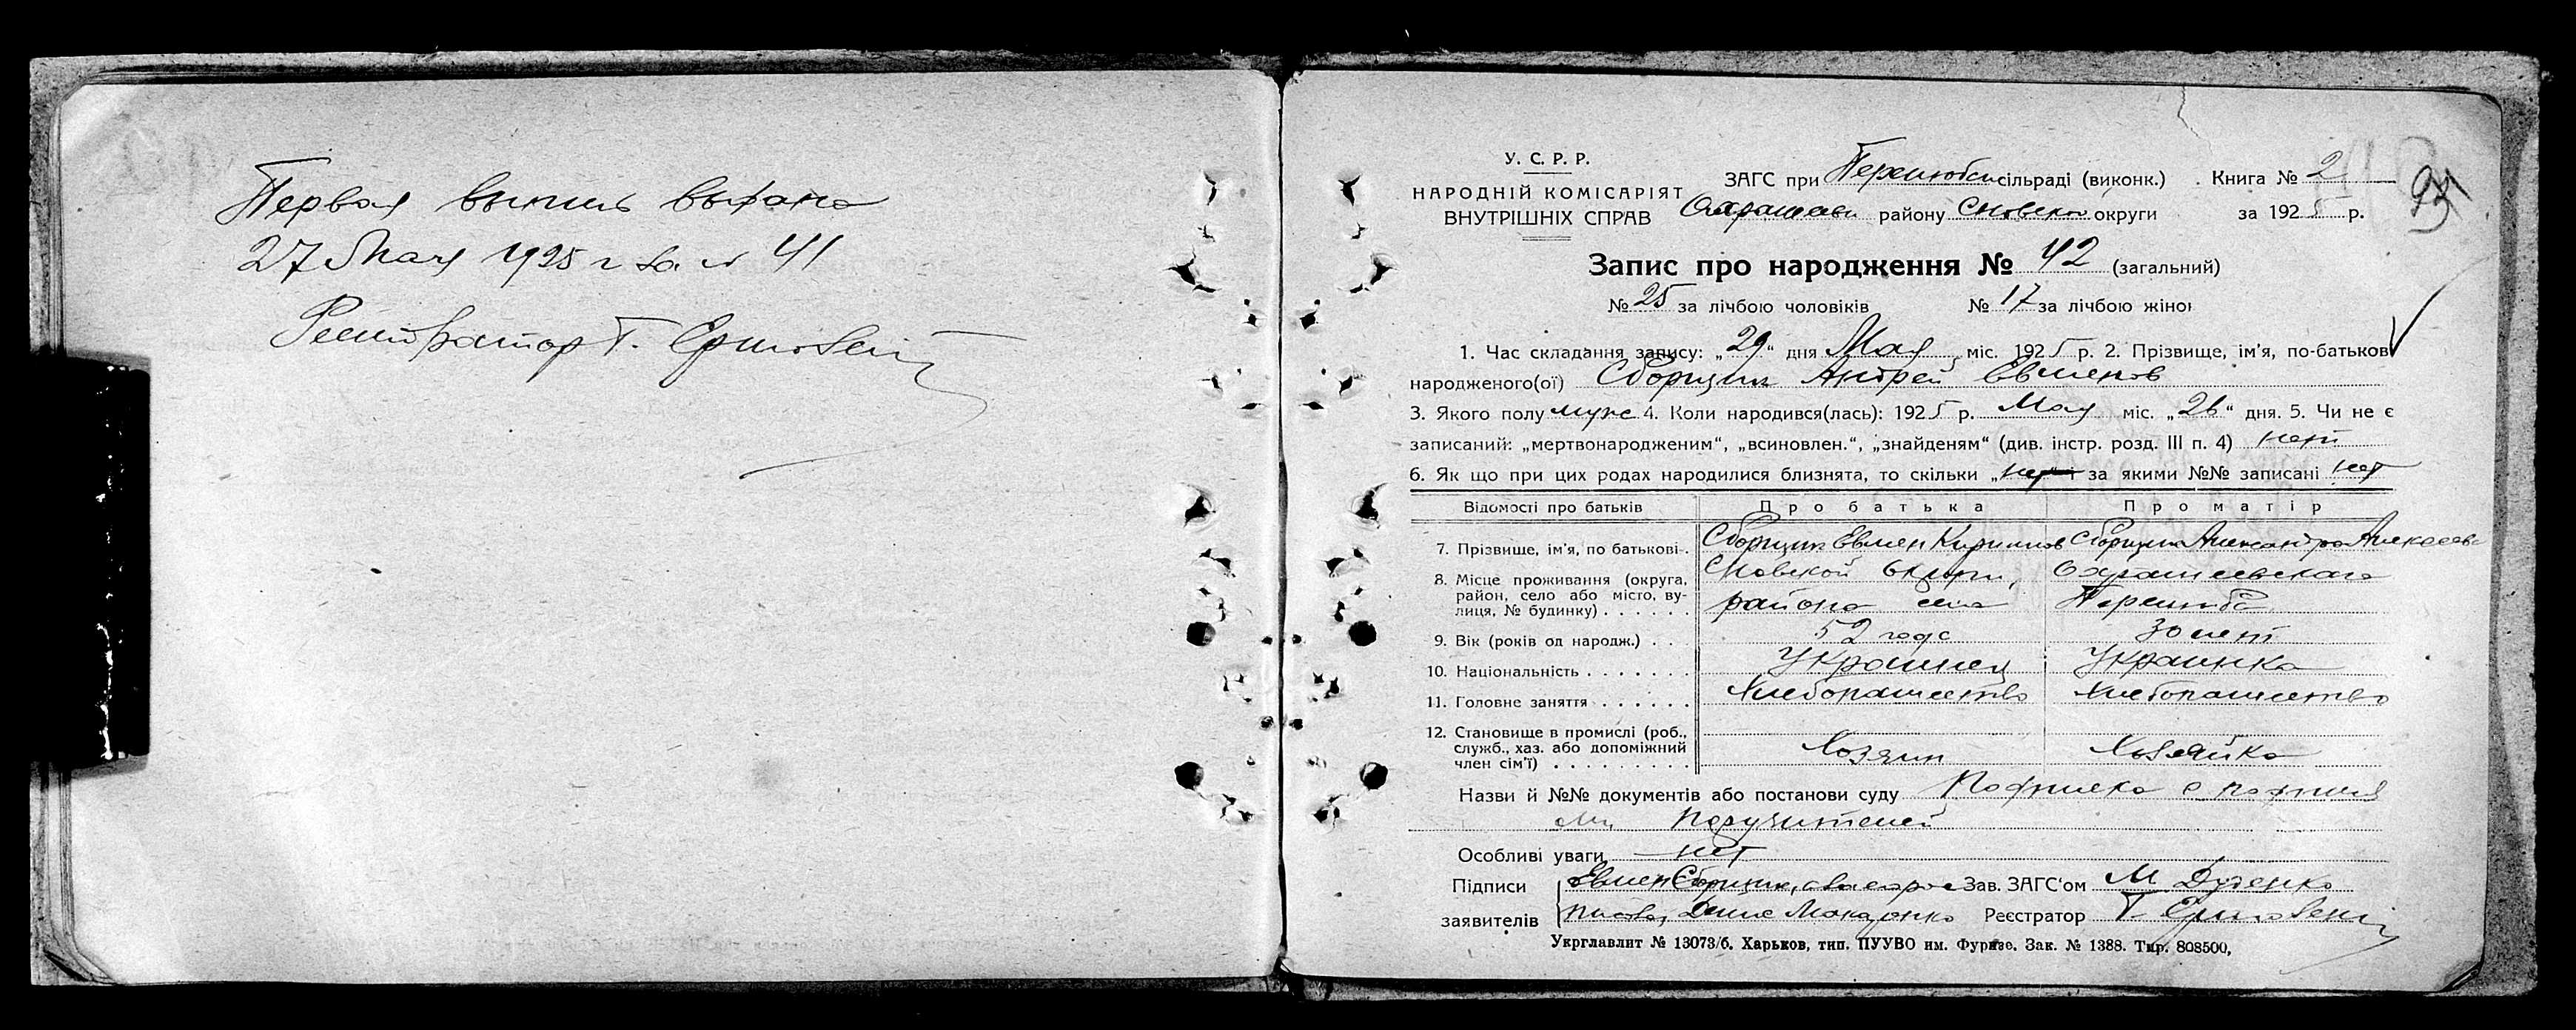 Первая выпись выдана
27 Мая 1925 г за № 41
Регистратор Т.
У. С. Р. Р.
НАРОДНІЙ КОМІСАРІЯТ
ВНУТРІШНІХ СПРАВ
ЗАГС при Перелюбск сільраді (виконк.) Книга № 2
району Сновской округи за 1925 р.
Запис про народження № 42 (загальний)
№ 25 за лічбою чоловіків № 17 за лічбою жінок
1. Час складання запису: „29“ дня Мая міс. 1925 р. 2. Прізвище, ім'я, по-батькові
народженого(ої) Сборщик Андрей Евменов
3. Якого полу муж 4. Коли народився(лась): 1925 р. Мая міс. „26“ дня. 5. Чи не є
записаний: „мертвонародженим“, „всиновлен.“, „знайденям“ (див. інстр. розд. III п. 4) нет
6. Як що при цих родах народилися близнята, то скільки „нет“ і за якими №№ записані нет
Відомості про батьків Про батька Про матір
7. Прізвище, ім'я, по батькові. Сборщик Евмен Кирилов Сборщик Александра Алексеев
8. Місце проживання (округа, район, село або місто, вулиця, № будинку) Сновской округи, Охрамиевского
района села Перелюба
9. Вік (років од народж.) 52 года 30 лет
10. Національність Украинец Украинка
11. Головне заняття Хлебопашество Хлебопашество
12. Становище в промислі (роб., служб., хаз. або допоміжний член сім'ї) Хозяин Хозяйка
Назви й №№ документів або постанови суду Подписка с подпися
ми поручителей
Особливі уваги нет
Підписи Евмен Сборщик, Зав. ЗАГС'ом М Дуденко
заявителів Макаренко Реєстратор Т.
Укрглавлит № 13073/б. Харьков, тип. ПУУВО им. Фрунзе. Зак. № 1388. Тир. 808500,